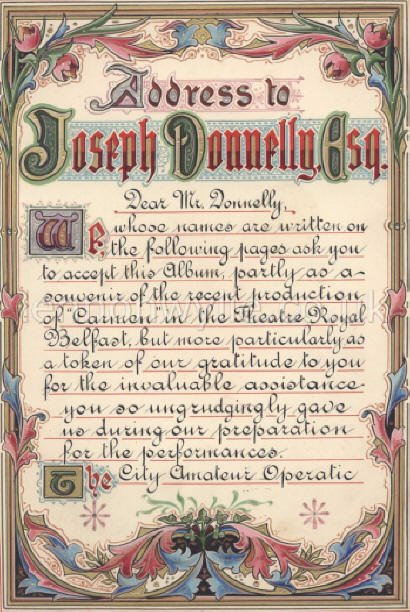 Address to
Joseph Donnelly, Esq.
Dear Mr. Donnelly,
We, whose names are written on
the following pages ask you
to accept this Album, partly as a
souvenir of the recent production
of "Carmen" in the Theatre Royal
Belfast, but more particularly as
a token of our gratitude to you
for the invaluable assistance
you so ungrudgingly gave
us during our preparation
for the performances.
The City Amateur Operatic